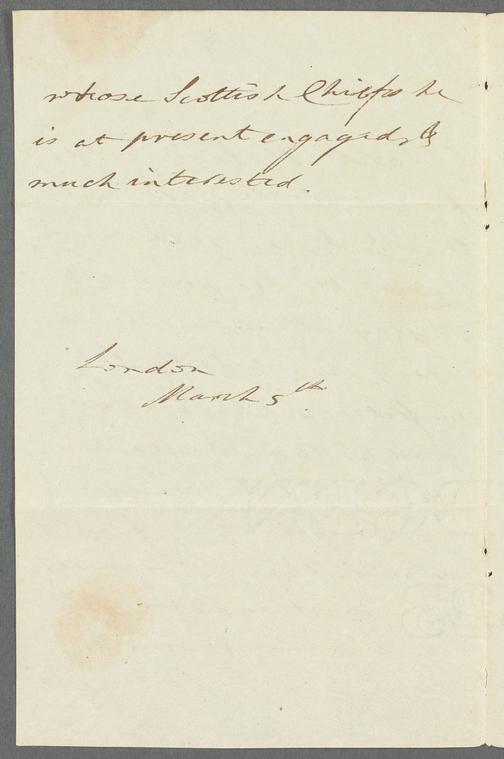 whose Scottish Chiefs he
is at present engaged, &
much interested.
London
March 5th